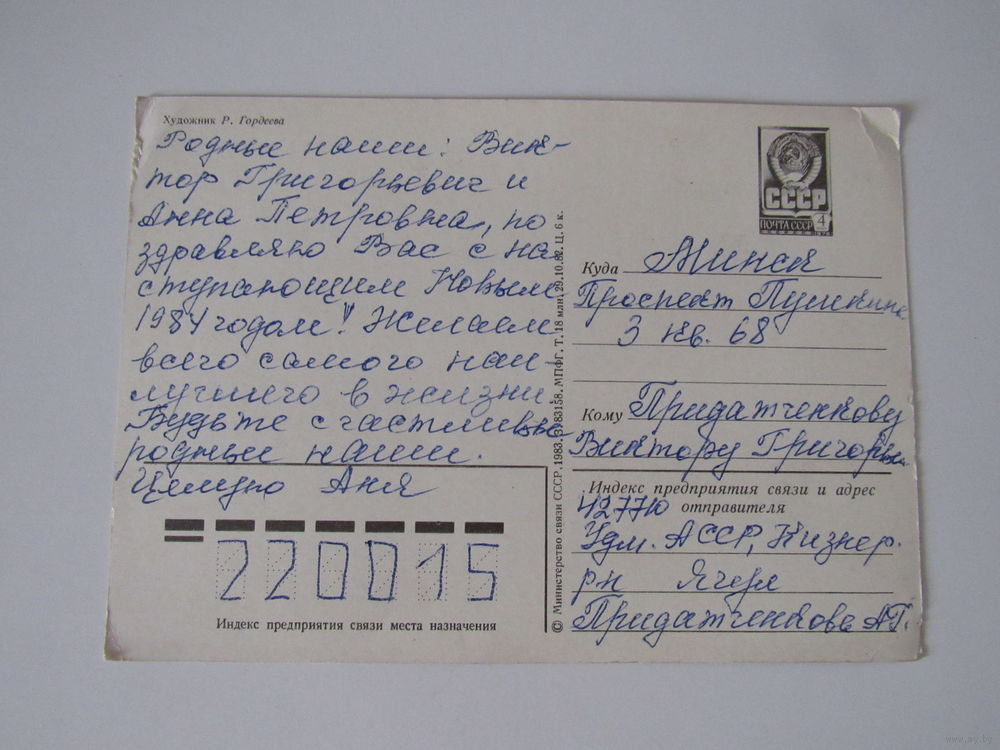 Художник Р. Гордеева
Родные наши: Вик-
тор Григорьевич и
Анна Петровна, по
здравляю Вас с на
ступающим Новым
1984 годом! Желаем
всего самого наи-
лучшего в жизни.
Будьте счастливы
родные наши.
Целую Аня
220015
Индекс предприятия связи места назначения
© Министерство связи СССР. 1983. З 83158. МПФГ. Т. 18 млн. 29.10.82. Ц. 6 к.
СССР
4
ПОЧТА СССР
Куда Минск
Проспект Пушкина
3 кв. 68
Кому Придатченкову
Виктору Григорьев.
Индекс предприятия связи и адрес
отправителя
427710
Удм. АССР, Кизнер.
рн Ягул
Придатченкова АГ.
www.ay.by